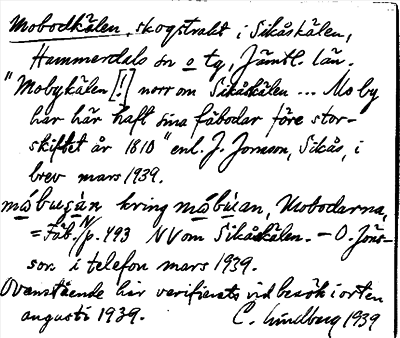 Mobodkälen, skogstrakt i Sikåskälen,
Hammerdals sn o tg, Jämtl. län.
"Mobykälen [!] norr om Sikåskälen ... Mo by
har här haft sina fäbodar före stor-
skiftet år 1810" enl. J. Jonsson, Sikås, i
brev mars 1939.
kring Mobodarna,
= Fäb. N/p. 493 NV om Sikåskälen. – O. Jöns-
son i telefon mars 1939.
Ovanstående har verifierats vid besök i orten
augusti 1939. C. Lindberg 1939